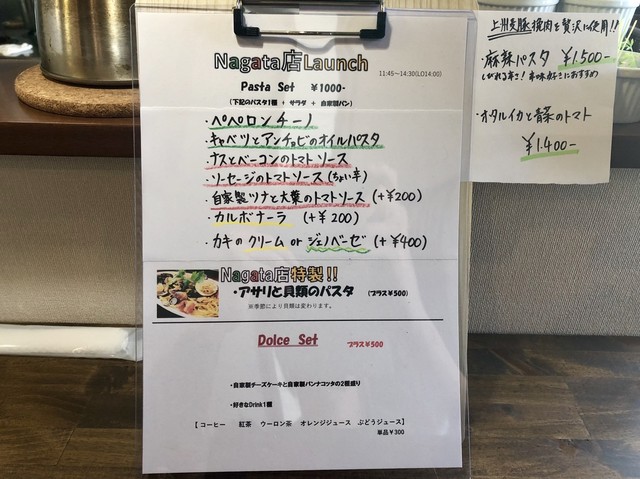 Nagata店Launch
11:45～14:30(LO14:00)
Pasta Set ¥1000-
(下記のパスタ1種 + サラダ + 自家製パン)
・ペペロンチーノ
・キャベツとアンチョビのオイルパスタ
・ナスとベーコンのトマトソース
・ソーセージのトマトソース(ちょい辛)
・自家製ツナと大葉のトマトソース(+¥200)
・カルボナーラ (+¥200)
・カキのクリーム or ジェノベーゼ(+¥400)
Nagata店特製!!
・アサリと貝類のパスタ (プラス¥500)
※季節により貝類は変わります。
Dolce Set プラス¥500
・自家製チーズケーキと自家製パンナコッタの2種盛り
・好きなDrink1種
【コーヒー 紅茶 ウーロン茶 オレンジジュース ぶどうジュース】
単品¥300
上州麦豚挽肉を贅沢に使用!!
麻辣パスタ ¥1.500-
しびれる辛さ! 辛味好きにおすすめ
・オタルイカと青菜のトマト
¥1.400-